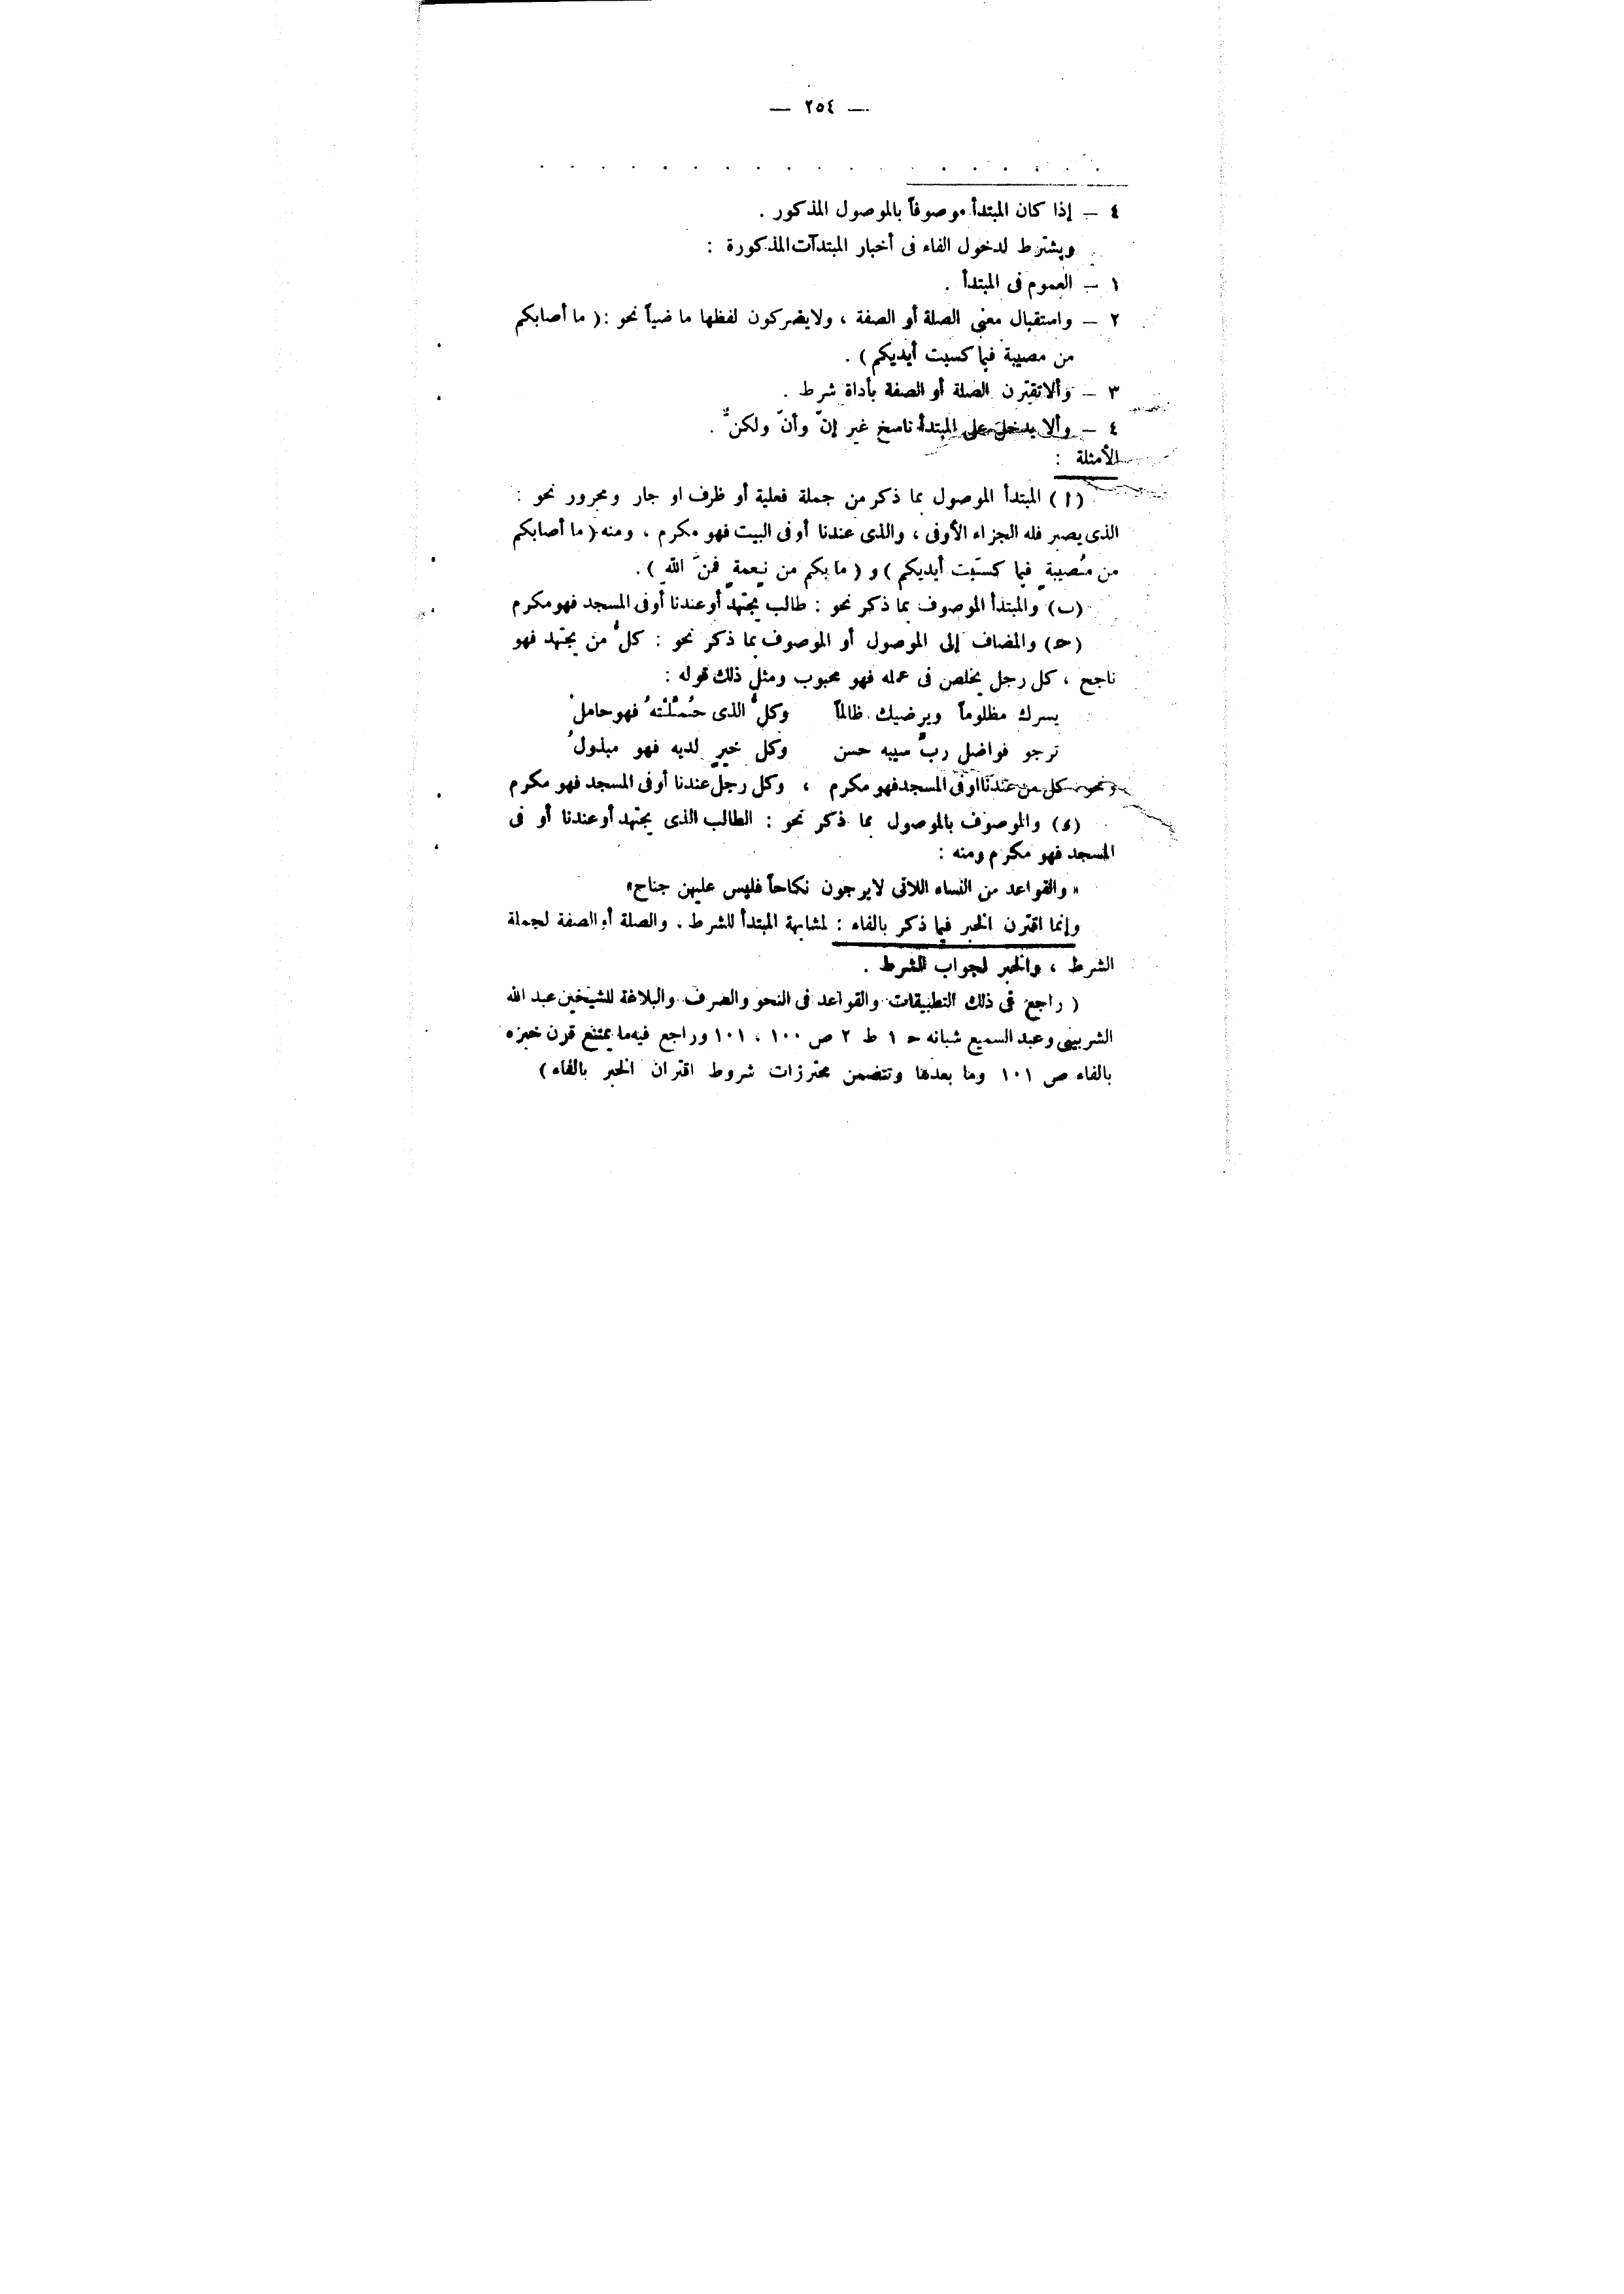 — ٢٥٤ —
٤ — إذا كان المبتدأ موصوفاً بالموصول المذكور .
ويشترط لدخول الفاء فى أخبار المبتدآت المذكورة :
١ — العموم فى المبتدأ .
٢ — واستقبال معنى الصلة أو الصفة ، ولا يضر كون لفظها ماضياً نحو : ( ما أصابكم
من مصيبة فبما كسبت أيديكم ) .
٣ — وألا تقترن الصلة أو الصفة بأداة شرط .
٤ — وألا يدخل على المبتدأ ناسخ غير إنّ وأنّ ولكنّ .
الأمثلة :
( ا ) المبتدأ الموصول بما ذكر من جملة فعلية أو ظرف او جار ومجرور نحو :
الذى يصبر فله الجزاء الأوفى ، والذى عندنا أو فى البيت فهو مكرم ، ومنه ( ما أصابكم
من مُصيبةٍ فبما كسَبت أيديكم ) و ( ما بكم من نِعمةٍ فمنَ اللهِ ) .
(ب) والمبتدأ الموصوف بما ذكر نحو : طالب يجتهد أو عندنا أو فى المسجد فهو مكرم
(حـ) والمضاف إلى الموصول أو الموصوف بما ذكر نحو : كلُّ من يجتهد فهو
ناجح ، كل رجل يخلص فى عمله فهو محبوب ومثل ذلك قوله :
يسرك مظلوماً ويرضيك ظالماً وكلُّ الذى حُمِّلْتَهُ فهو حاملُ
ترجو فواضل ربٍّ سيبه حسن وكل خيرٍ لديه فهو مبذولُ
ونحو كل من عندنا أو فى المسجد فهو مكرم ، وكل رجل عندنا أو فى المسجد فهو مكرم
(د) والموصوف بالموصول بما ذكر نحو : الطالب الذى يجتهد أو عندنا أو فى
المسجد فهو مكرم ومنه :
« والقواعد من النساء اللاتى لا يرجون نكاحاً فليس عليهن جناح »
وإنما اقترن الخبر فيما ذكر بالفاء : لمشابهة المبتدأ للشرط . والصلة أو الصفة لجملة
الشرط ، والخبر لجواب الشرط .
( راجع فى ذلك التطبيقات والقواعد فى النحو والصرف والبلاغة للشيخين عبد الله
الشربينى وعبد السميع شبانه حـ ١ ط ٢ ص ١٠٠ ، ١٠١ وراجع فيه ما يمتنع قرن خبره
بالفاء ص ١٠١ وما بعدها وتتضمن محترزات شروط اقتران الخبر بالفاء )